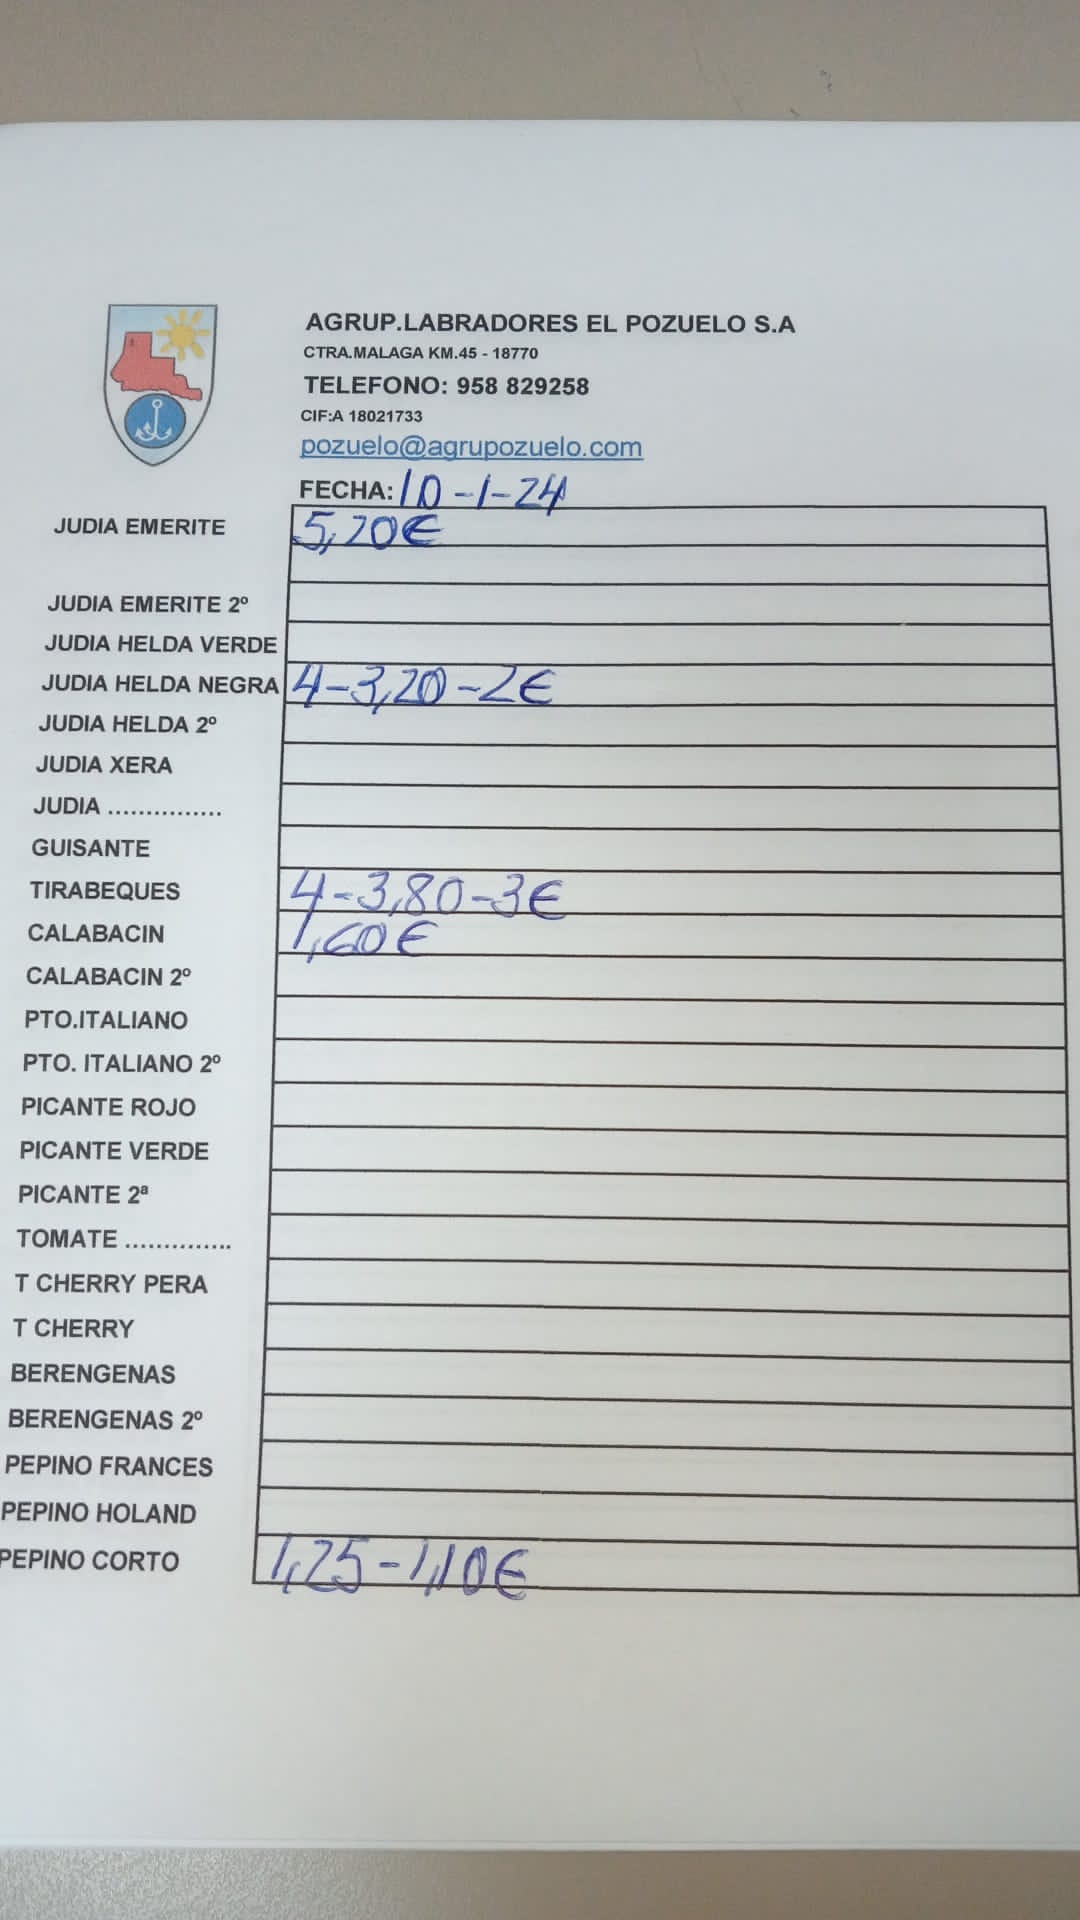 AGRUP.LABRADORES EL POZUELO S.A
CTRA.MALAGA KM.45 - 18770
TELEFONO: 958 829258
CIF:A 18021733
pozuelo@agrupozuelo.com
FECHA: 10-1-24
JUDIA EMERITE 5,20€
JUDIA EMERITE 2º
JUDIA HELDA VERDE
JUDIA HELDA NEGRA 4-3,20-2€
JUDIA HELDA 2º
JUDIA XERA
JUDIA ...............
GUISANTE
TIRABEQUES 4-3,80-3€
CALABACIN 1,60€
CALABACIN 2º
PTO.ITALIANO
PTO. ITALIANO 2º
PICANTE ROJO
PICANTE VERDE
PICANTE 2ª
TOMATE ..............
T CHERRY PERA
T CHERRY
BERENGENAS
BERENGENAS 2º
PEPINO FRANCES
PEPINO HOLAND
PEPINO CORTO 1,25-1,10€